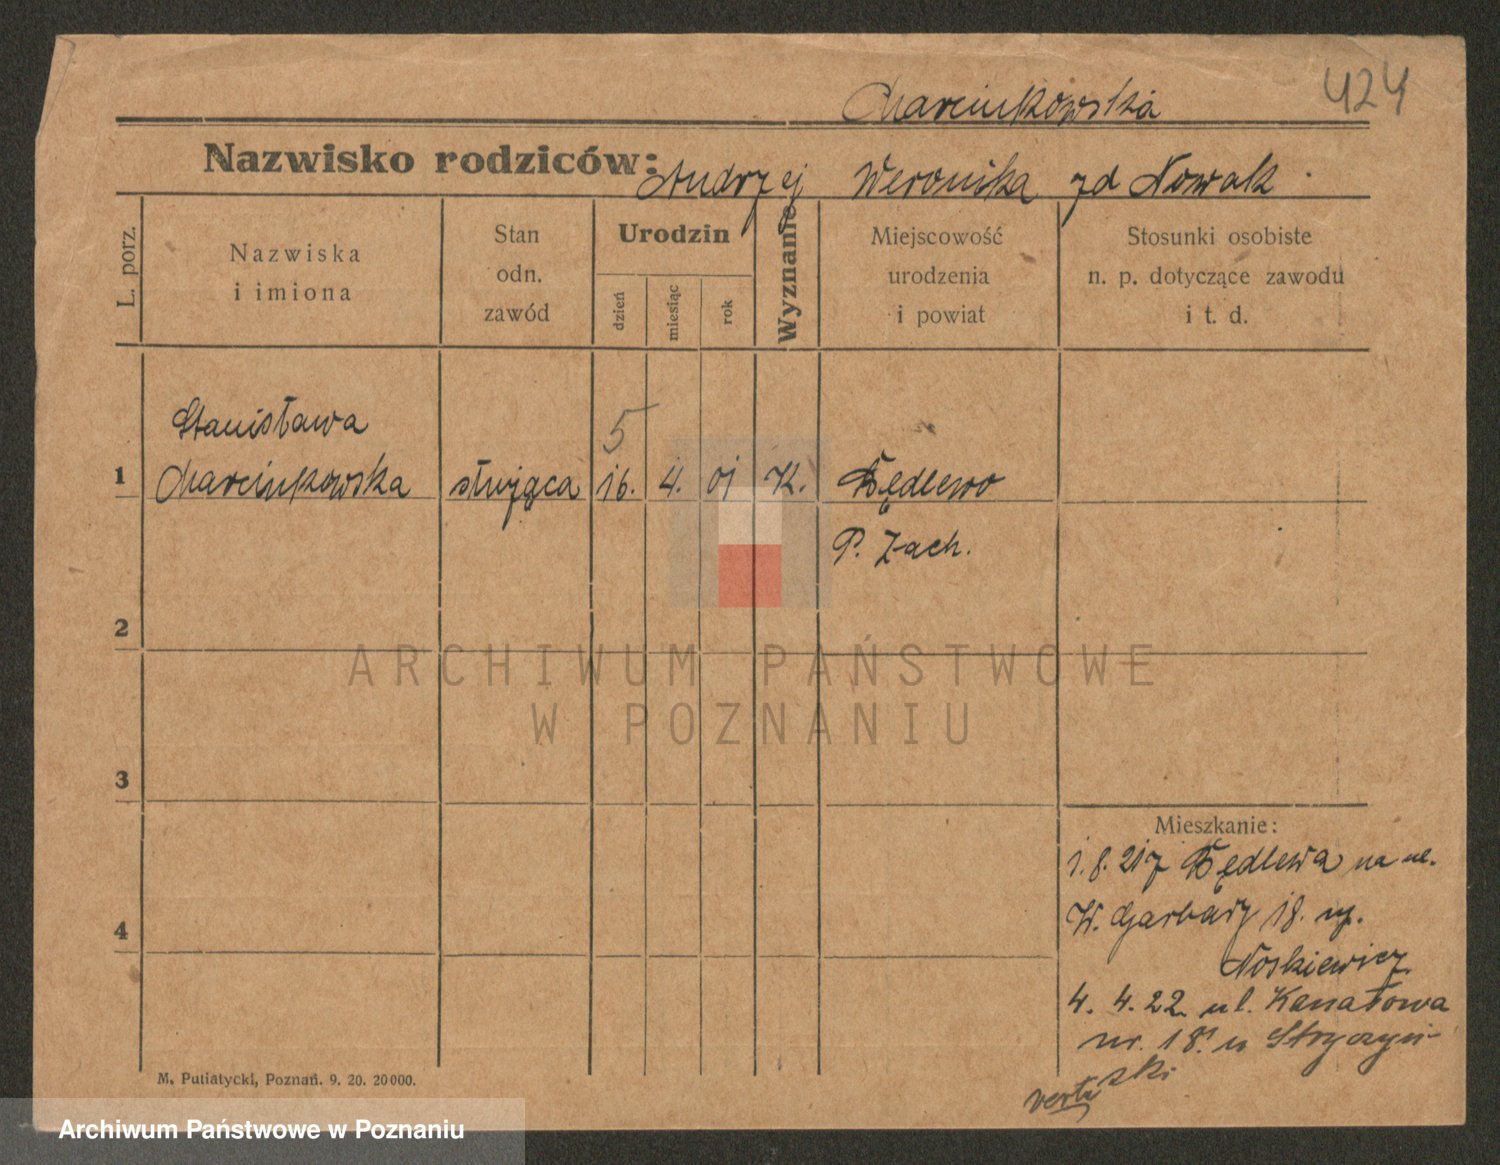 424
Marcinkowska
Nazwisko rodziców: Andrzej Weronika zd Nowak.
L. porz.
Nazwiska
i imiona
Stan
odn.
zawód
Urodzin
dzień
miesiąc
rok
Wyznanie
Miejscowość
urodzenia
i powiat
Stosunki osobiste
n. p. dotyczące zawodu
i t. d.
Stanisława
5
1 Marcinkowska służąca 16. 4. 01 K. Będlewo
P. Zach.
2
ARCHIWUM PAŃSTWOWE
W POZNANIU
3
Mieszkanie:
1. 8. 21 z Będlewa na ul.
4
W. Garbary 18.
Noskiewicz.
4. 4. 22 ul. Kanałowa
nr. 18. u Stryczyń-
ski
verte
M. Putiatycki, Poznań. 9. 20. 20000.
Archiwum Państwowe w Poznaniu